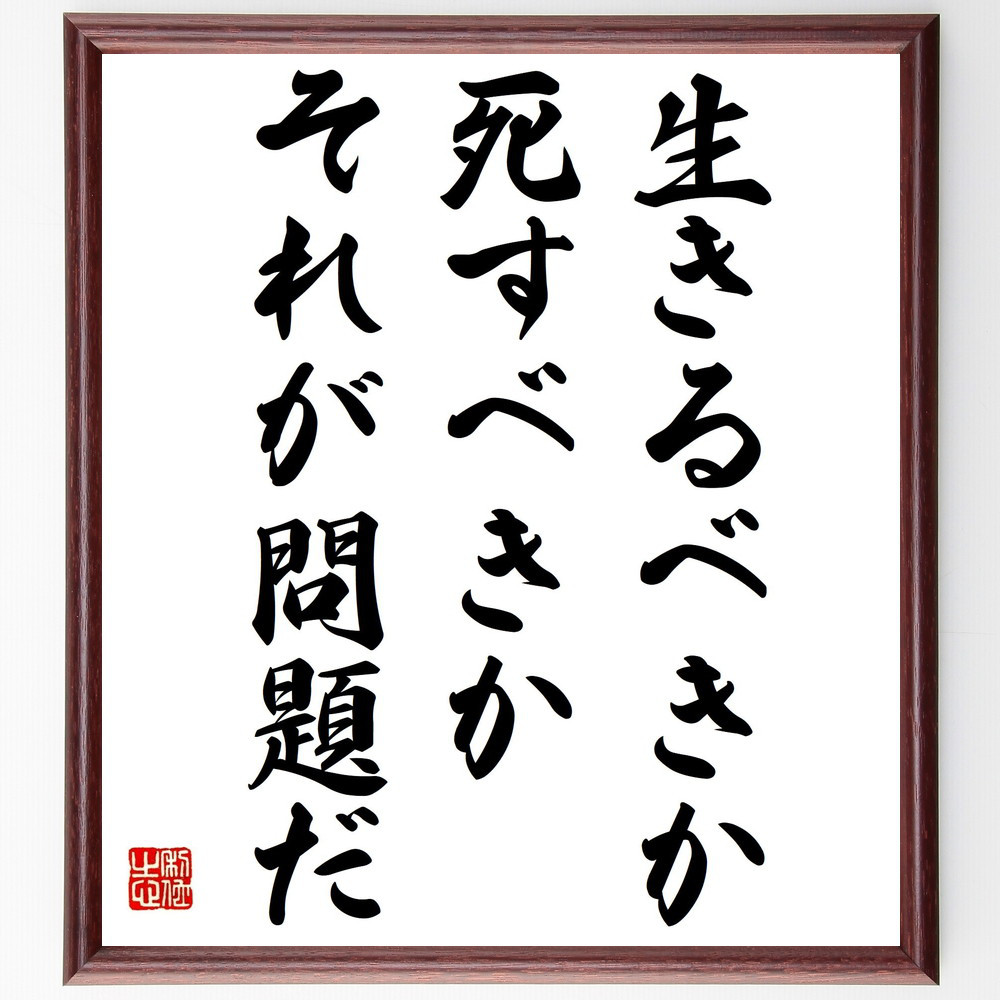 生きるべきか
死すべきか
それが問題だ